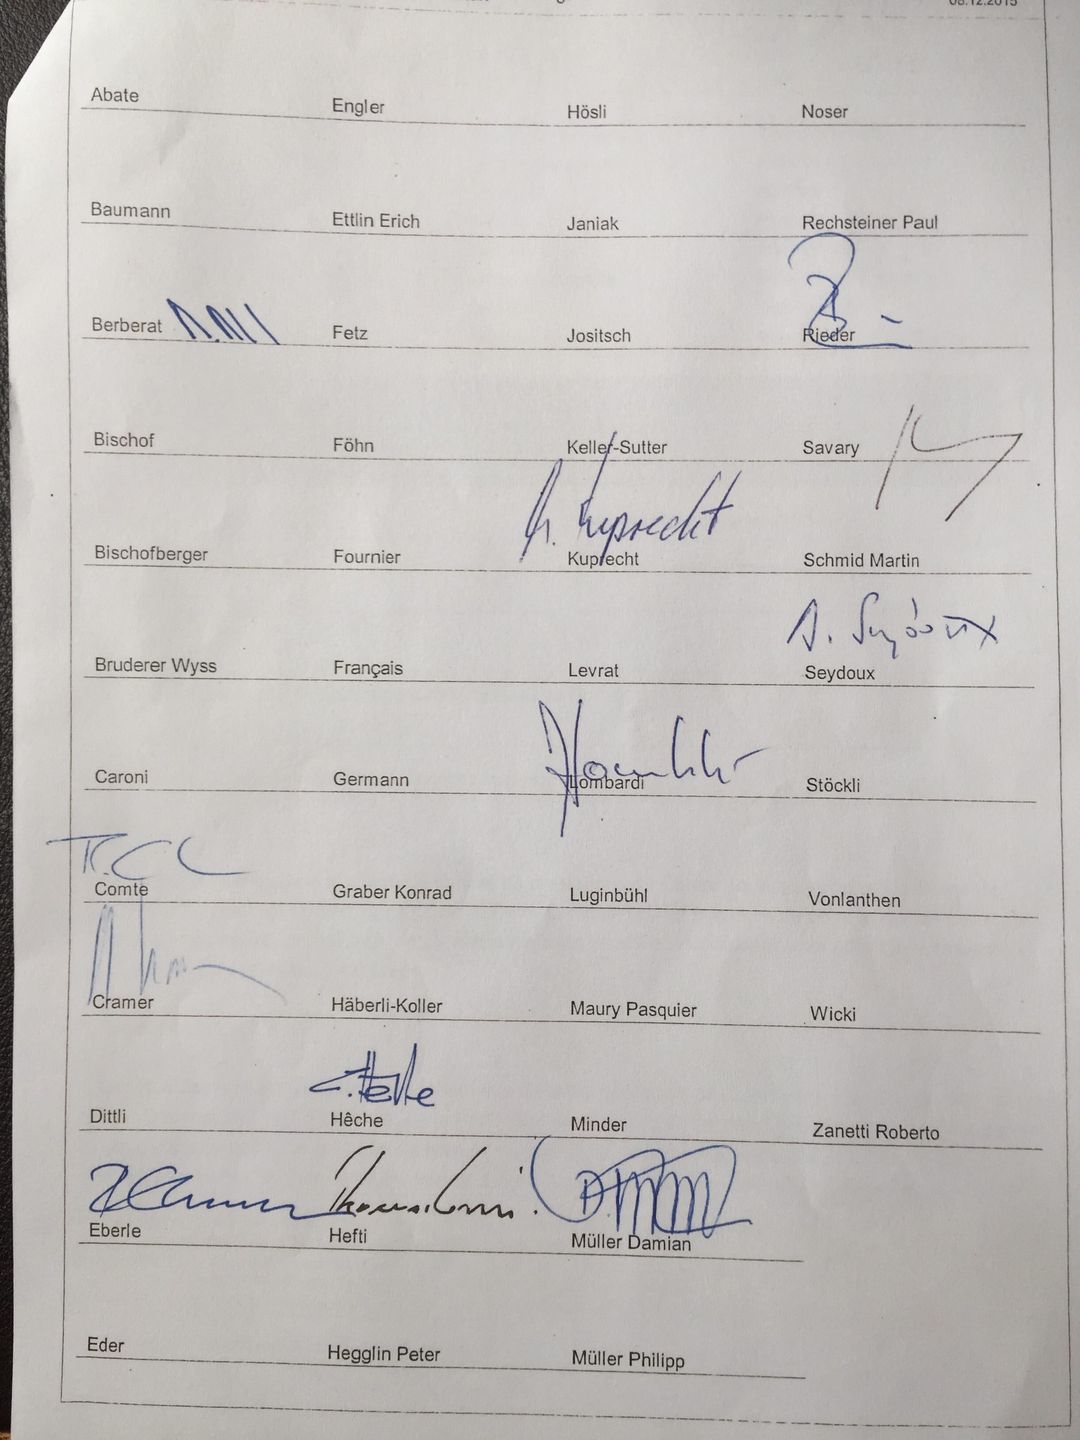 08.12.2015
Abate Engler Hösli Noser
Baumann Ettlin Erich Janiak Rechsteiner Paul
Berberat Fetz Jositsch Rieder
Bischof Föhn Keller-Sutter Savary
Kuprecht
Bischofberger Fournier Kuprecht Schmid Martin
A. Seydoux
Bruderer Wyss Français Levrat Seydoux
Caroni Germann Lombardi Stöckli
Comte Graber Konrad Luginbühl Vonlanthen
Cramer Häberli-Koller Maury Pasquier Wicki
Dittli Hêche Minder Zanetti Roberto
Eberle Hefti Müller Damian
Eder Hegglin Peter Müller Philipp